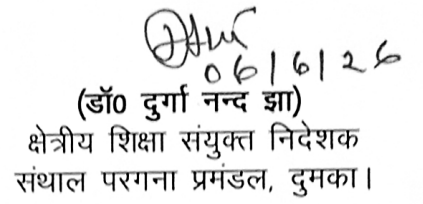 06/6/26
(डॉ0 दुर्गा नन्द झा)
क्षेत्रीय शिक्षा संयुक्त निदेशक
संथाल परगना प्रमंडल, दुमका।